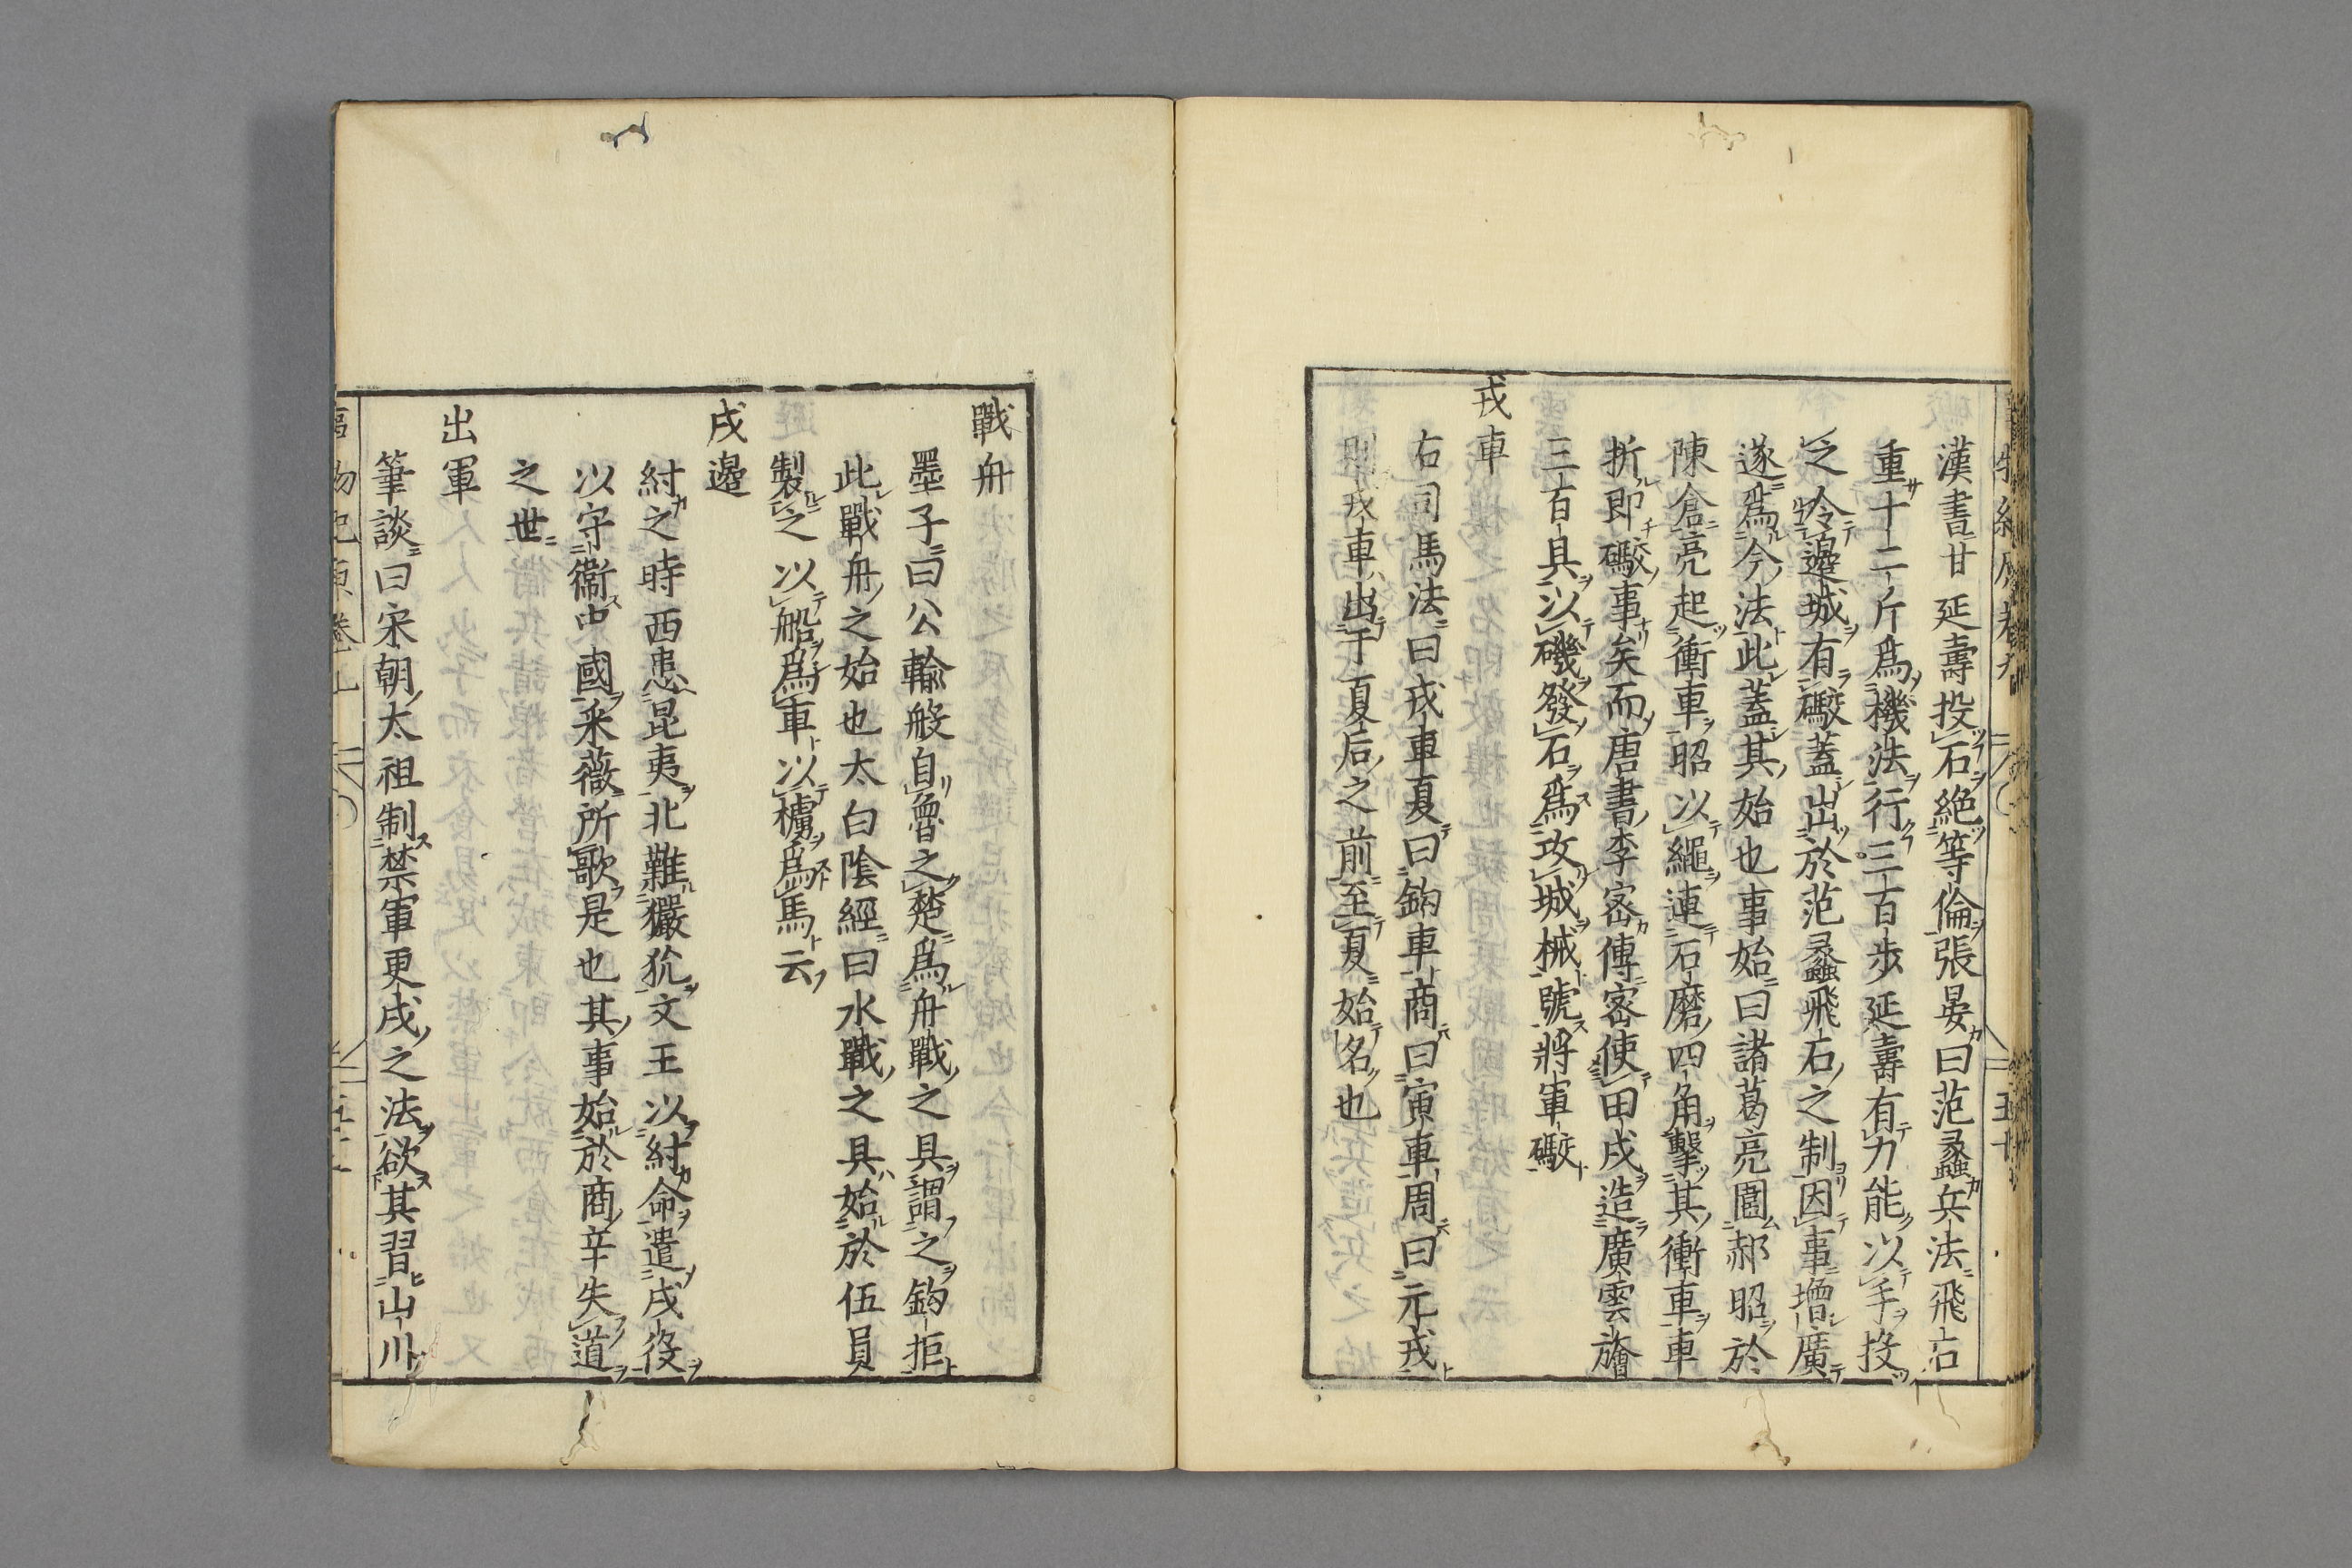 漢書甘延壽投石絶等倫張晏曰范蠡兵法飛石
重十二斤爲機法行三百步延壽有力能以手投
之今邊城有礮蓋出於范蠡飛石之制因事增廣
遂爲今法此蓋其始也事始曰諸葛亮圍郝昭於
陳倉亮起衝車昭以繩連石磨四角擊其衝車車
折即礮事矣而唐書李宻傳宻使田戌造廣雲旝
三百具以磯發石爲攻城械號將軍礮
戎車
右司馬法曰戎車夏曰鈎車商曰寅車周曰元戎
則戎車出于夏后之前至夏始名也
戰舟
墨子曰公輸般自魯之楚爲舟戰之具謂之鈎拒
此戰舟之始也太白陰經曰水戰之具始於伍員
製之以船爲車以櫓爲馬云
戍邊
紂之時西患昆夷北難玁狁文王以紂命遣戍役
以守衞中國釆薇所歌是也其事始於商辛失道
之世
出軍
筆談曰宋朝太祖制禁軍更戍之法欲其習山川